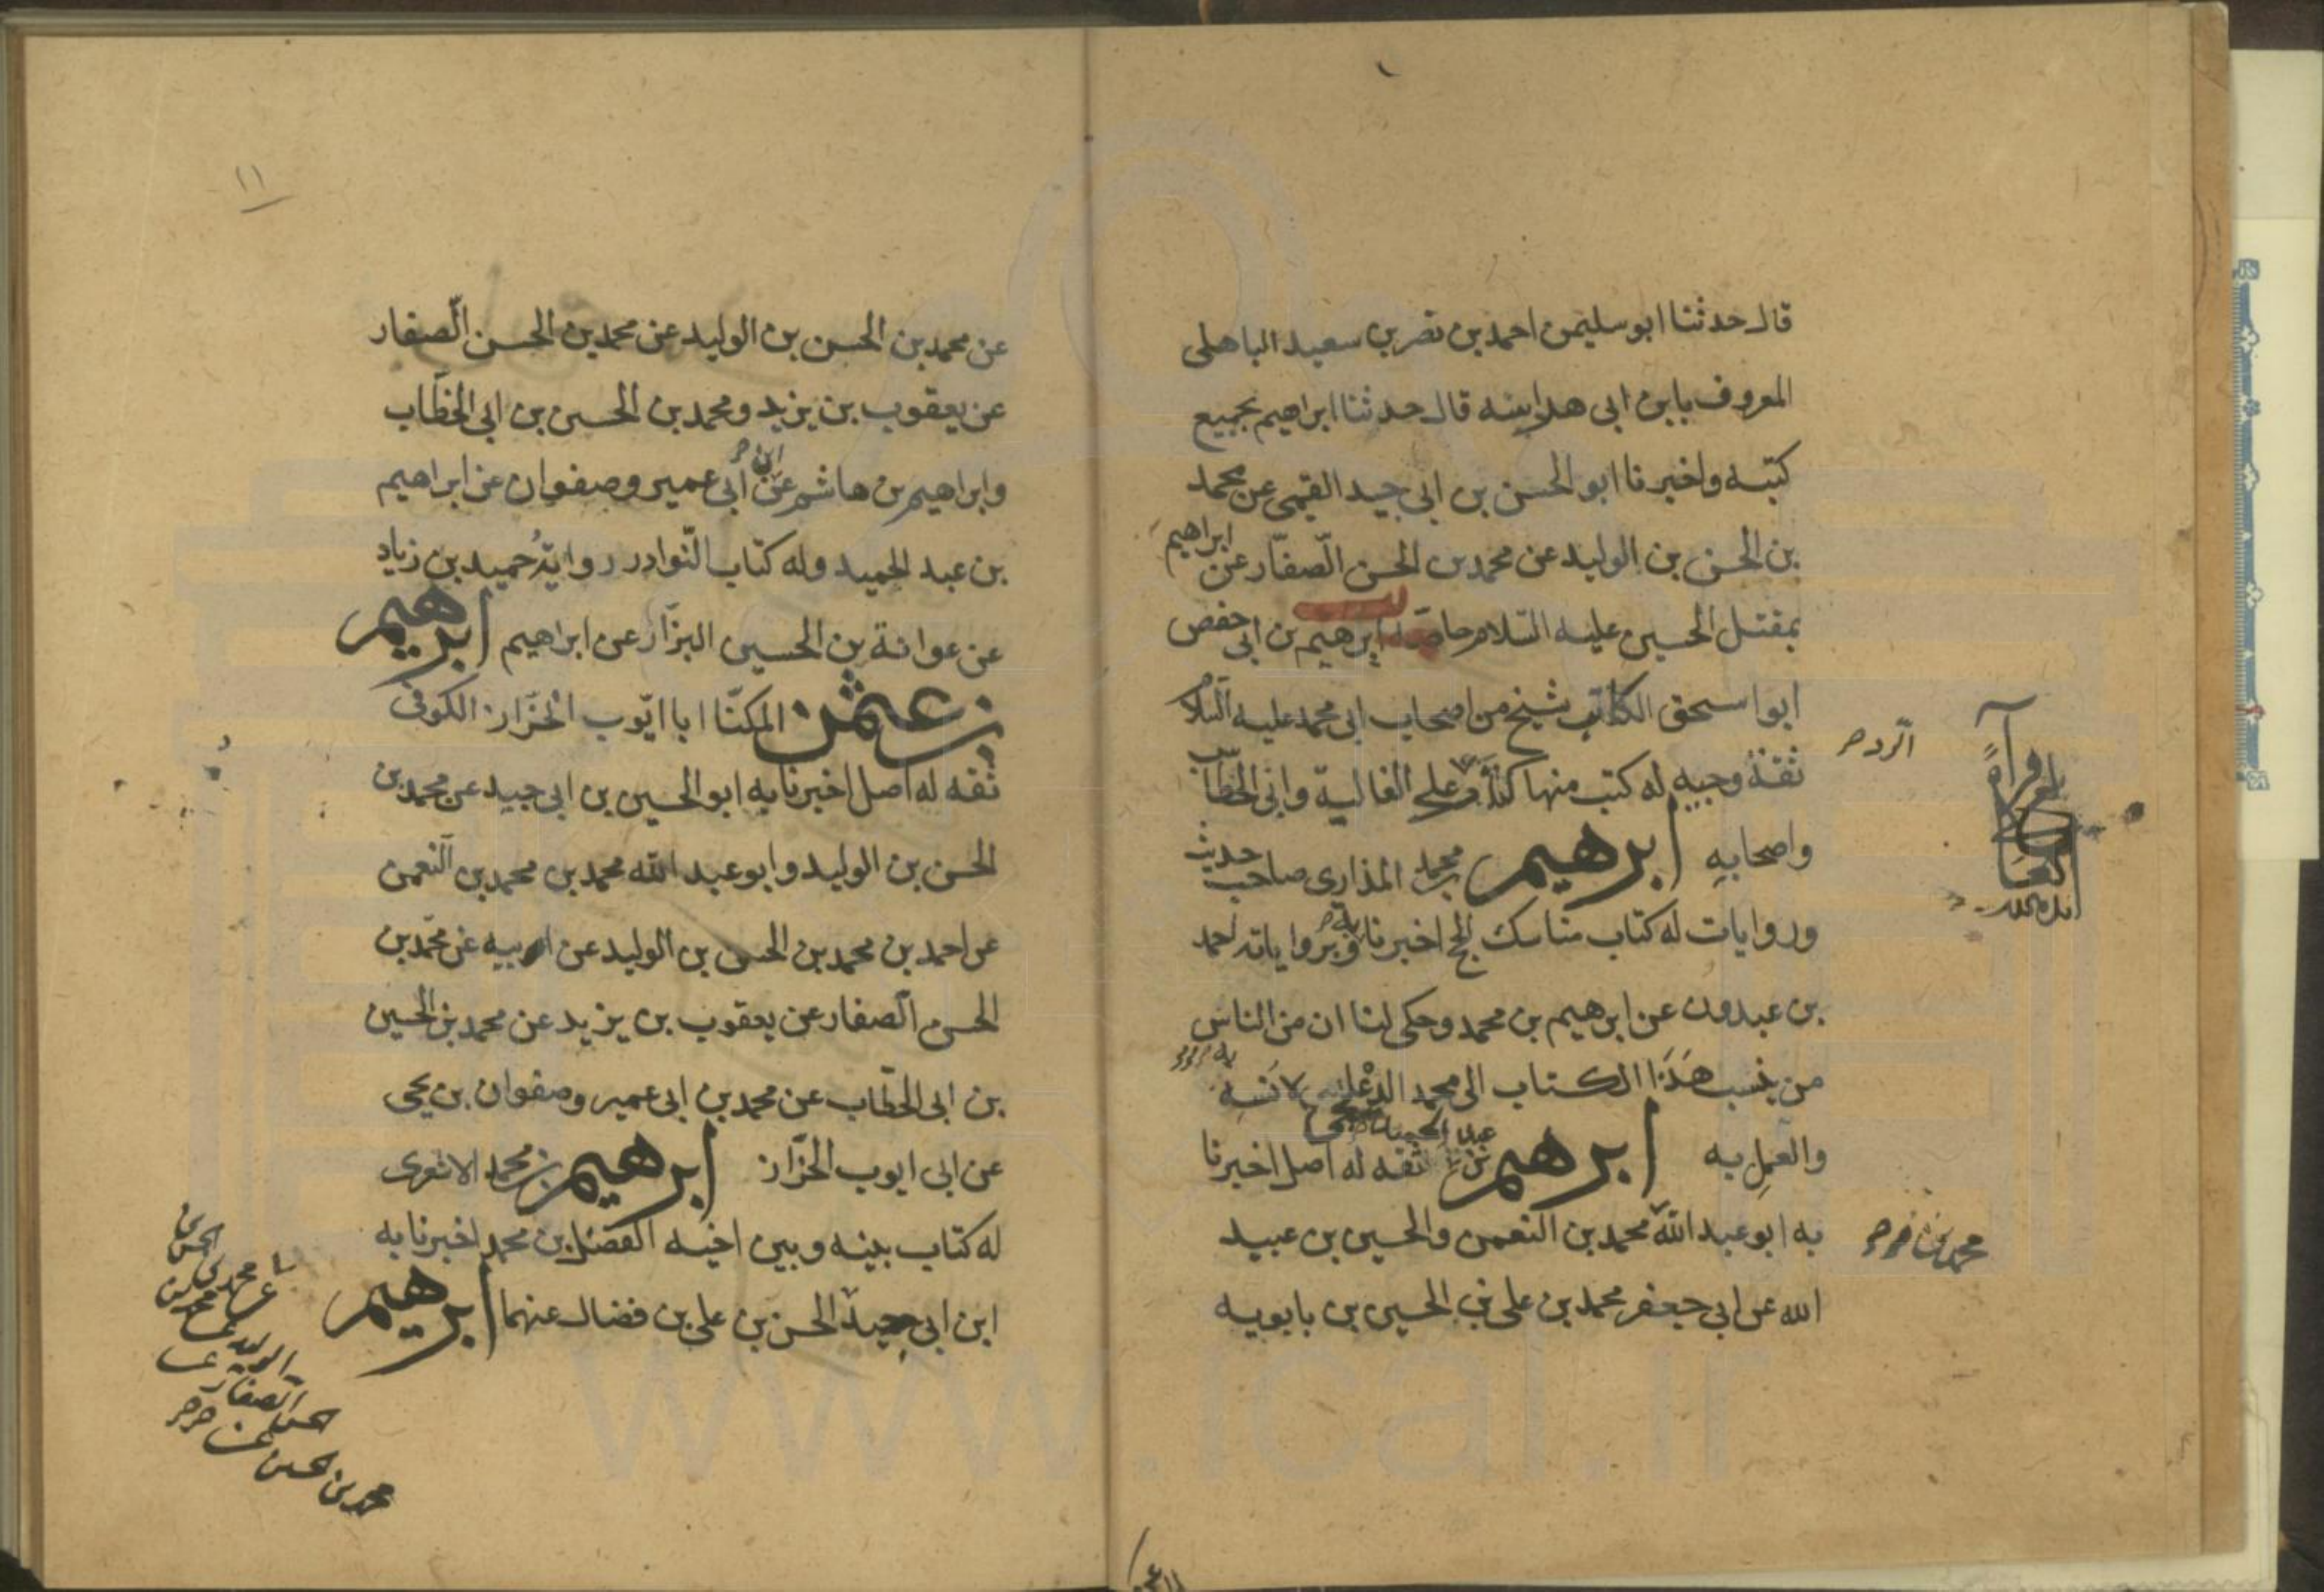 قال حدثنا ابو سليمن احمد بن نصر بن سعيد الباهلى
المعروف بابن ابى هراسه قال حدثنا ابراهيم بجميع
كتبه واخبرنا ابو الحسن بن ابى جيد القيمى عن محمد
بن الحسن بن الوليد عن محمد بن الحسن الصفّار عن ابراهيم
بمقتل الحسين عليه السلام خاصّة ابرهيم بن ابى حفص
ابو اسحق الكاتب شيخ من اصحاب ابى محمد عليه السلام
ثقة وجيه له كتب منها كتاب على الغالية وابى الخطّاب
الرد صح
واصحابه ابرهيم بن محمد المذارى صاحب حديث
وروايات له كتاب مناسك الحج اخبرنا به وبرواياته احمد
بن عبدون عن ابرهيم بن محمد وحكى لنا ان من الناس
من ينسب هذا الكتاب الى محمد الدعلجى لانسه به
والعمل به ابرهيم بن عبد الحميد ثقه له اصل اخبرنا
به ابو عبد الله محمد بن النعمن والحسين بن عبيد
محمد بن
الله عن ابى جعفر محمد بن على بن الحسين بن بابويه
١١
عن محمد بن الحسن بن الوليد عن محمد بن الحسن الصّفار
عن يعقوب بن يزيد ومحمد بن الحسين بن ابى الخطّاب
وابراهيم بن هاشم عن ابن ابى عمير وصفوان عن ابراهيم
بن عبد الحميد وله كتاب النّوادر رواية حميد بن زياد
عن عوانة بن الحسين البزّاز عن ابراهيم ابرهيم
بن عثمن المكنّا ابا ايّوب الخزّاز الكوفى
ثقه له اصل اخبرنا به ابو الحسين بن ابى جيد عن محمد بن
الحسن بن الوليد وابو عبد الله محمد بن محمد بن النعمن
عن احمد بن محمد بن الحسن بن الوليد عن ابيه عن محمد بن
الحسن الصفار عن يعقوب بن يزيد عن محمد بن الحسين
بن ابى الخطّاب عن محمد بن ابى عمير وصفوان بن يحيى
عن ابى ايوب الخزّاز ابرهيم بن محمد الاشعرى
له كتاب بينه وبين اخيه الفضل بن محمد اخبرنا به
ابن ابى جيد الحسن بن على بن فضال عنهما ابرهيم
عن محمد بن الحسن
الوليد عن
الصفار عن
محمد بن الحسين عن
www.ical.ir